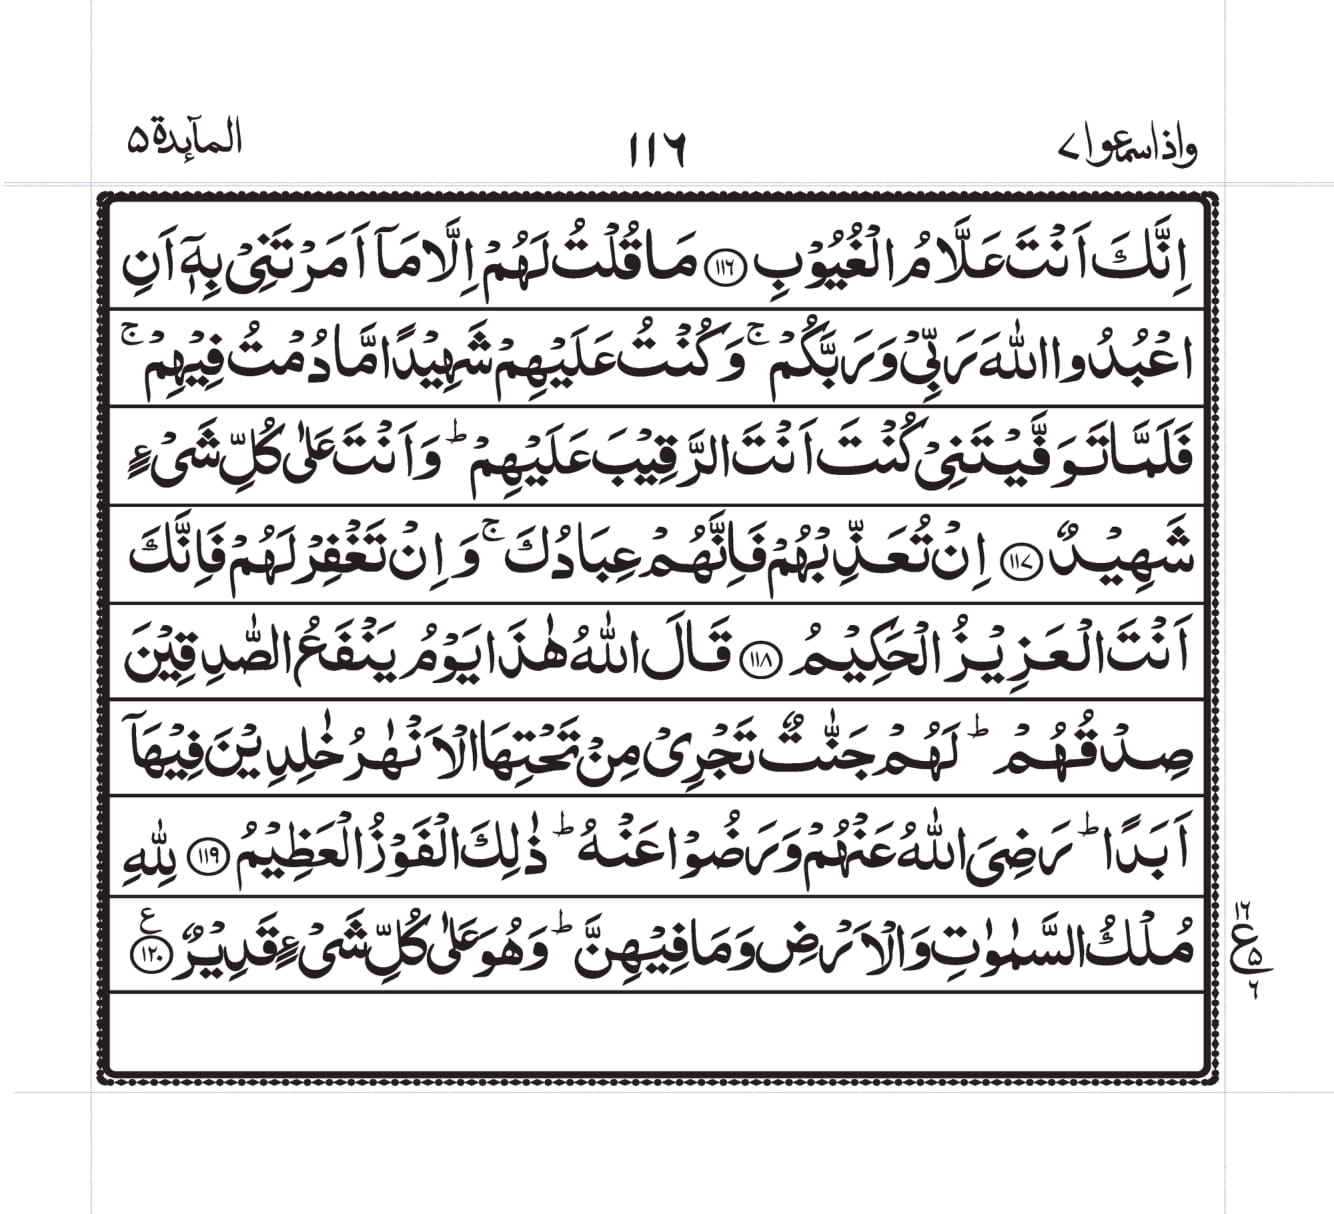 واذاسمعوا ٧ ١١٦ المآىِٕدة ٥
اِنَّكَ اَنْتَ عَلَّامُ الْغُيُوْبِ ١١٦ مَا قُلْتُ لَهُمْ اِلَّا مَاۤ اَمَرْتَنِىْ بِهٖۤ اَنِ
اعْبُدُوا اللّٰهَ رَبِّىْ وَرَبَّكُمْ ۚ وَكُنْتُ عَلَيْهِمْ شَهِيْدًا مَّا دُمْتُ فِيْهِمْ ۚ
فَلَمَّا تَوَفَّيْتَنِىْ كُنْتَ اَنْتَ الرَّقِيْبَ عَلَيْهِمْ ؕ وَاَنْتَ عَلٰى كُلِّ شَىْءٍ
شَهِيْدٌ ١١٧ اِنْ تُعَذِّبْهُمْ فَاِنَّهُمْ عِبَادُكَ ۚ وَاِنْ تَغْفِرْ لَهُمْ فَاِنَّكَ
اَنْتَ الْعَزِيْزُ الْحَكِيْمُ ١١٨ قَالَ اللّٰهُ هٰذَا يَوْمُ يَنْفَعُ الصّٰدِقِيْنَ
صِدْقُهُمْ ؕ لَهُمْ جَنّٰتٌ تَجْرِىْ مِنْ تَحْتِهَا الْاَنْهٰرُ خٰلِدِيْنَ فِيْهَاۤ
اَبَدًا ؕ رَضِىَ اللّٰهُ عَنْهُمْ وَرَضُوْا عَنْهُ ؕ ذٰلِكَ الْفَوْزُ الْعَظِيْمُ ١١٩ لِلّٰهِ
مُلْكُ السَّمٰوٰتِ وَالْاَرْضِ وَمَا فِيْهِنَّ ؕ وَهُوَ عَلٰى كُلِّ شَىْءٍ قَدِيْرٌ ١٢٠ ع
١٦
ع ٥
٦